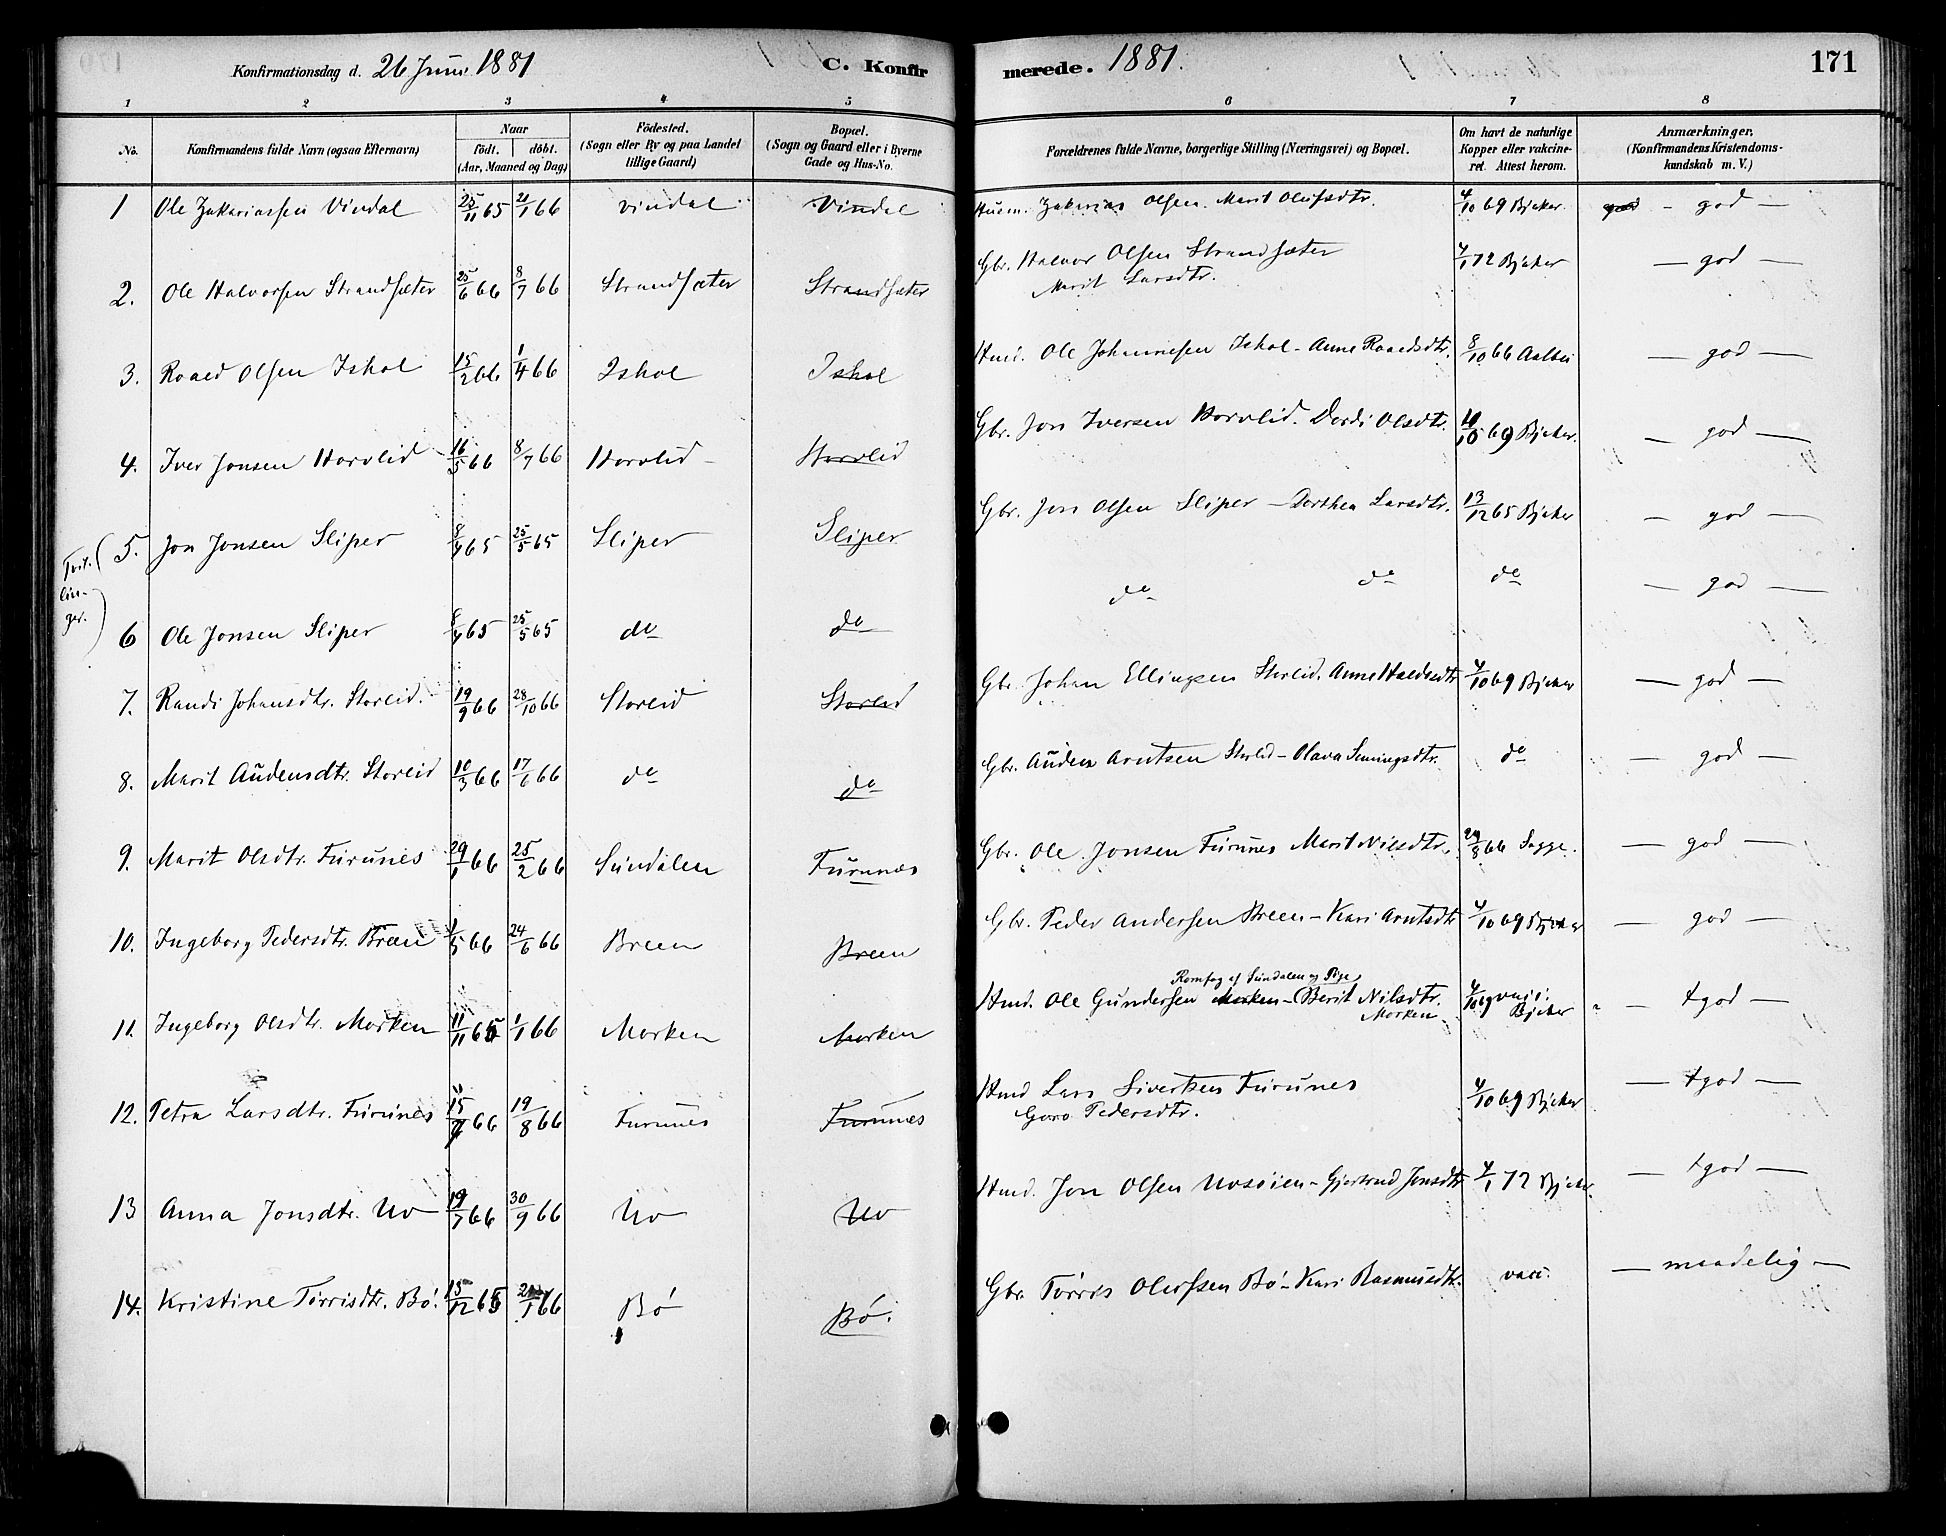 Konfirmationsdag d. 26 Juni 1881 C. Konfirmerede. 1881. 171
1 2 3 4 5 6 7 8
No. Konfirmandens fulde Navn (ogsaa Efternavn) Naar födt. döbt. (Aar, Maaned og Dag) Födested. (Sogn eller By og paa Landet tillige Gaard) Bopæl. (Sogn og Gaard eller i Byerne Gade og Hus-No. Forældrenes fulde Navne, borgerlige Stilling (Næringsvei) og Bopæl. Om havt de naturlige Kopper eller vakcineret. Attest herom. Anmærkninger. (Konfirmandens Kristendomskundskab m. V.)
1 Ole Zakariassen Vindal 25/11 65 21/1 66 Vindal Vindal Husm. Zakarias Olsen. Marit Olufsdtr. 4/10 69 Bjeker god - god -
2. Ole Halvorsen Strandsæter 25/6 66 8/7 66 Strandsæter Strandsæter Gbr. Halvor Olsen Strandsæter Marit Larsdtr. 4/1 72 Bjeker - god -
3. Roaed Olsen Ishol 15/2 66 1/4 66 Ishol Ishol Hmd. Ole Johannesen Ishol - Anne Roaedsdtr. 8/10 66 - god -
4. Iver Jonsen Horvlid 16/5 66 8/7 66 Horvlid Horvlid Gbr. Jon Iversen Horvlid. Dordi Olsdtr. 10/10 69 Bjeker. - god -
Tvillinger. 5. Jon Jonsen Sliper 8/4 65 25/5 65 Sliper Sliper Gbr. Jon Olsen Sliper - Dorthea Larsdtr. 13/12 65 Bjeker - god -
6 Ole Jonsen Sliper 8/4 65 25/5 65 do do do do do - god -
7. Randi Johansdtr. Storlid. 19/9 66 28/10 66 Storlid Storlid Gbr. Johan Ellingsen Storlid. Anne Haldosdtr 4/10 69 Bjeker - god -
8. Marit Audensdtr. Storlid 10/3 66 17/6 66 do do Gbr. Auden Arntsen Storlid - Olava Simingsdtr. do - god -
9. Marit Olsdtr. Furunes 29/1 66 25/2 66 Sundalen Furunes Gbr. Ole Jonsen Furunes Marit Nilsdtr. 29/8 66 Sagge. - god -
10. Ingeborg Pedersdtr. Breen 1/5 66 24/6 66 Breen Breen Gbr. Peder Andersen Breen - Kari Arntsdtr 4/10 69 Bjeker - god -
11. Ingeborg Olsdtr. Morken 11/11 65 1/1 66 Morken Morken Hmd. Ole Gundersen Morken Romfog af Sundalen og Pige - Berit Nilsdtr. Morken 4/10 69 Bjeker - tgod -
12. Petra Larsdtr. Furunes 15/7 66 19/8 66 Furunes Furunes Hmd Lars Sivertsen Furunes Goro Pedersdtr. 4/10 69 Bjeker - tgod -
13 Anna Jonsdtr. Uv 19/7 66 30/9 66 Uv Uv Hmd. Jon Olsen Uvsöien - Gjertrud Jonsdtr 4/1 72 Bjeker. - tgod -
14. Kristine Törrisdtr. Bö. 15/12 65 /1 66 Bö Bö. Gbr. Törres Olufsen Bö - Kari Rasmusdtr. vacc. - maadelig -